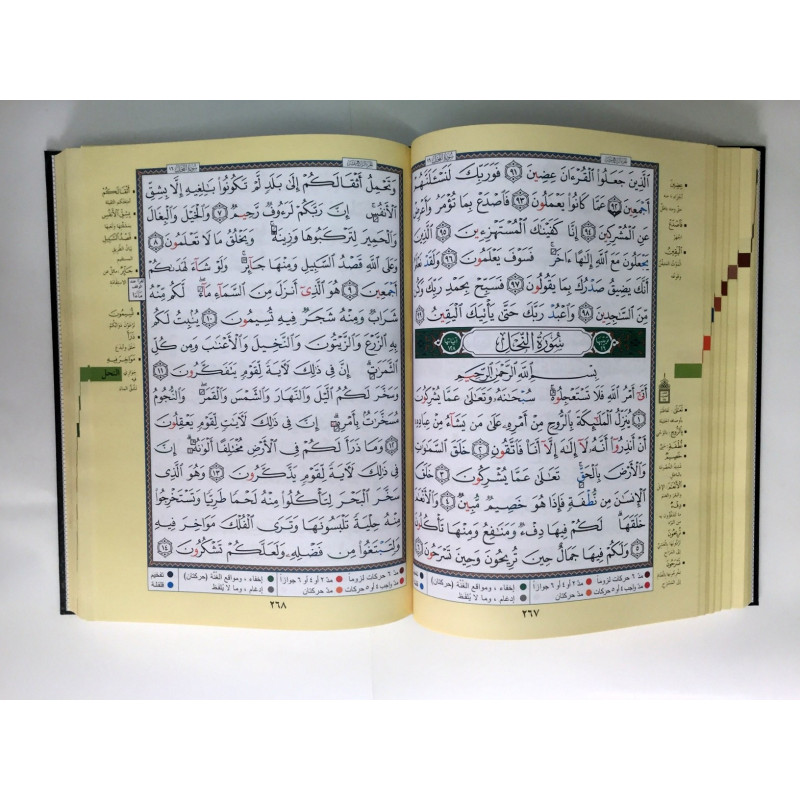 ٱلَّذِينَ جَعَلُوا۟ ٱلْقُرْءَانَ عِضِينَ ٩١ فَوَرَبِّكَ لَنَسْـَٔلَنَّهُمْ
أَجْمَعِينَ ٩٢ عَمَّا كَانُوا۟ يَعْمَلُونَ ٩٣ فَٱصْدَعْ بِمَا تُؤْمَرُ وَأَعْرِضْ
عَنِ ٱلْمُشْرِكِينَ ٩٤ إِنَّا كَفَيْنَـٰكَ ٱلْمُسْتَهْزِءِينَ ٩٥
يَجْعَلُونَ مَعَ ٱللَّهِ إِلَـٰهًا ءَاخَرَ ۚ فَسَوْفَ يَعْلَمُونَ ٩٦ وَلَقَدْ
أَنَّكَ يَضِيقُ صَدْرُكَ بِمَا يَقُولُونَ ٩٧ فَسَبِّحْ بِحَمْدِ رَبِّكَ وَكُن
مِّنَ ٱلسَّـٰجِدِينَ ٩٨ وَٱعْبُدْ رَبَّكَ حَتَّىٰ يَأْتِيَكَ ٱلْيَقِينُ
سُورَةُ النَّحْلِ
بِسْمِ ٱللَّهِ ٱلرَّحْمَـٰنِ ٱلرَّحِيمِ
أَتَىٰٓ أَمْرُ ٱللَّهِ فَلَا تَسْتَعْجِلُوهُ ۚ سُبْحَـٰنَهُۥ وَتَعَـٰلَىٰ عَمَّا يُشْرِكُونَ
١ يُنَزِّلُ ٱلْمَلَـٰٓئِكَةَ بِٱلرُّوحِ مِنْ أَمْرِهِۦ عَلَىٰ مَن يَشَآءُ مِنْ عِبَادِهِۦٓ
أَنْ أَنذِرُوٓا۟ أَنَّهُۥ لَآ إِلَـٰهَ إِلَّآ أَنَا۠ فَٱتَّقُونِ ٢ خَلَقَ ٱلسَّمَـٰوَٰتِ
وَٱلْأَرْضَ بِٱلْحَقِّ ۚ تَعَـٰلَىٰ عَمَّا يُشْرِكُونَ ٣ خَلَقَ
ٱلْإِنسَـٰنَ مِن نُّطْفَةٍ فَإِذَا هُوَ خَصِيمٌ مُّبِينٌ ٤ وَٱلْأَنْعَـٰمَ
خَلَقَهَا ۗ لَكُمْ فِيهَا دِفْءٌ وَمَنَـٰفِعُ وَمِنْهَا تَأْكُلُونَ
٥ وَلَكُمْ فِيهَا جَمَالٌ حِينَ تُرِيحُونَ وَحِينَ تَسْرَحُونَ
عِضِينَ
فَٱصْدَعْ
ٱلْيَقِينُ
نُطْفَةٍ
خَصِيمٌ
دِفْءٌ
تُرِيحُونَ
تَسْرَحُونَ
مدّ ٦ حركات لزوماً مدّ ٢ أو ٤ أو ٦ جوازاً إخفاء ، ومواقع الغنّة (حركتان)
مدّ واجب ٤ أو ٥ حركات مدّ حركتان إدغام ، وما لا يُلفظ
٢٦٧
وَتَحْمِلُ أَثْقَالَكُمْ إِلَىٰ بَلَدٍ لَّمْ تَكُونُوا۟ بَـٰلِغِيهِ إِلَّا بِشِقِّ
ٱلْأَنفُسِ ۚ إِنَّ رَبَّكُمْ لَرَءُوفٌ رَّحِيمٌ ٧ وَٱلْخَيْلَ وَٱلْبِغَالَ
وَٱلْحَمِيرَ لِتَرْكَبُوهَا وَزِينَةً ۚ وَيَخْلُقُ مَا لَا تَعْلَمُونَ ٨
وَعَلَى ٱللَّهِ قَصْدُ ٱلسَّبِيلِ وَمِنْهَا جَآئِرٌ ۚ وَلَوْ شَآءَ لَهَدَىٰكُمْ
أَجْمَعِينَ ٩ هُوَ ٱلَّذِىٓ أَنزَلَ مِنَ ٱلسَّمَآءِ مَآءً ۖ لَّكُم مِّنْهُ
شَرَابٌ وَمِنْهُ شَجَرٌ فِيهِ تُسِيمُونَ ١٠ يُنۢبِتُ لَكُم
بِهِ ٱلزَّرْعَ وَٱلزَّيْتُونَ وَٱلنَّخِيلَ وَٱلْأَعْنَـٰبَ وَمِن كُلِّ
ٱلثَّمَرَٰتِ ۗ إِنَّ فِى ذَٰلِكَ لَـَٔايَةً لِّقَوْمٍ يَتَفَكَّرُونَ ١١
وَسَخَّرَ لَكُمُ ٱلَّيْلَ وَٱلنَّهَارَ وَٱلشَّمْسَ وَٱلْقَمَرَ ۖ وَٱلنُّجُومُ
مُسَخَّرَٰتٌۢ بِأَمْرِهِۦٓ ۗ إِنَّ فِى ذَٰلِكَ لَـَٔايَـٰتٍ لِّقَوْمٍ يَعْقِلُونَ
١٢ وَمَا ذَرَأَ لَكُمْ فِى ٱلْأَرْضِ مُخْتَلِفًا أَلْوَٰنُهُۥٓ ۗ إِنَّ
فِى ذَٰلِكَ لَـَٔايَةً لِّقَوْمٍ يَذَّكَّرُونَ ١٣ وَهُوَ ٱلَّذِى
سَخَّرَ ٱلْبَحْرَ لِتَأْكُلُوا۟ مِنْهُ لَحْمًا طَرِيًّا وَتَسْتَخْرِجُوا۟
مِنْهُ حِلْيَةً تَلْبَسُونَهَا وَتَرَى ٱلْفُلْكَ مَوَاخِرَ فِيهِ
وَلِتَبْتَغُوا۟ مِن فَضْلِهِۦ وَلَعَلَّكُمْ تَشْكُرُونَ ١٤
أَثْقَالَكُمْ
بِشِقِّ ٱلْأَنفُسِ
قَصْدُ ٱلسَّبِيلِ
جَآئِرٌ
تُسِيمُونَ
ذَرَأَ
مَوَاخِرَ فِيهِ
النحل
مدّ ٦ حركات لزوماً مدّ ٢ أو ٤ أو ٦ جوازاً إخفاء ، ومواقع الغنّة (حركتان) تفخيم
مدّ واجب ٤ أو ٥ حركات مدّ حركتان إدغام ، وما لا يُلفظ قلقلة
٢٦٨